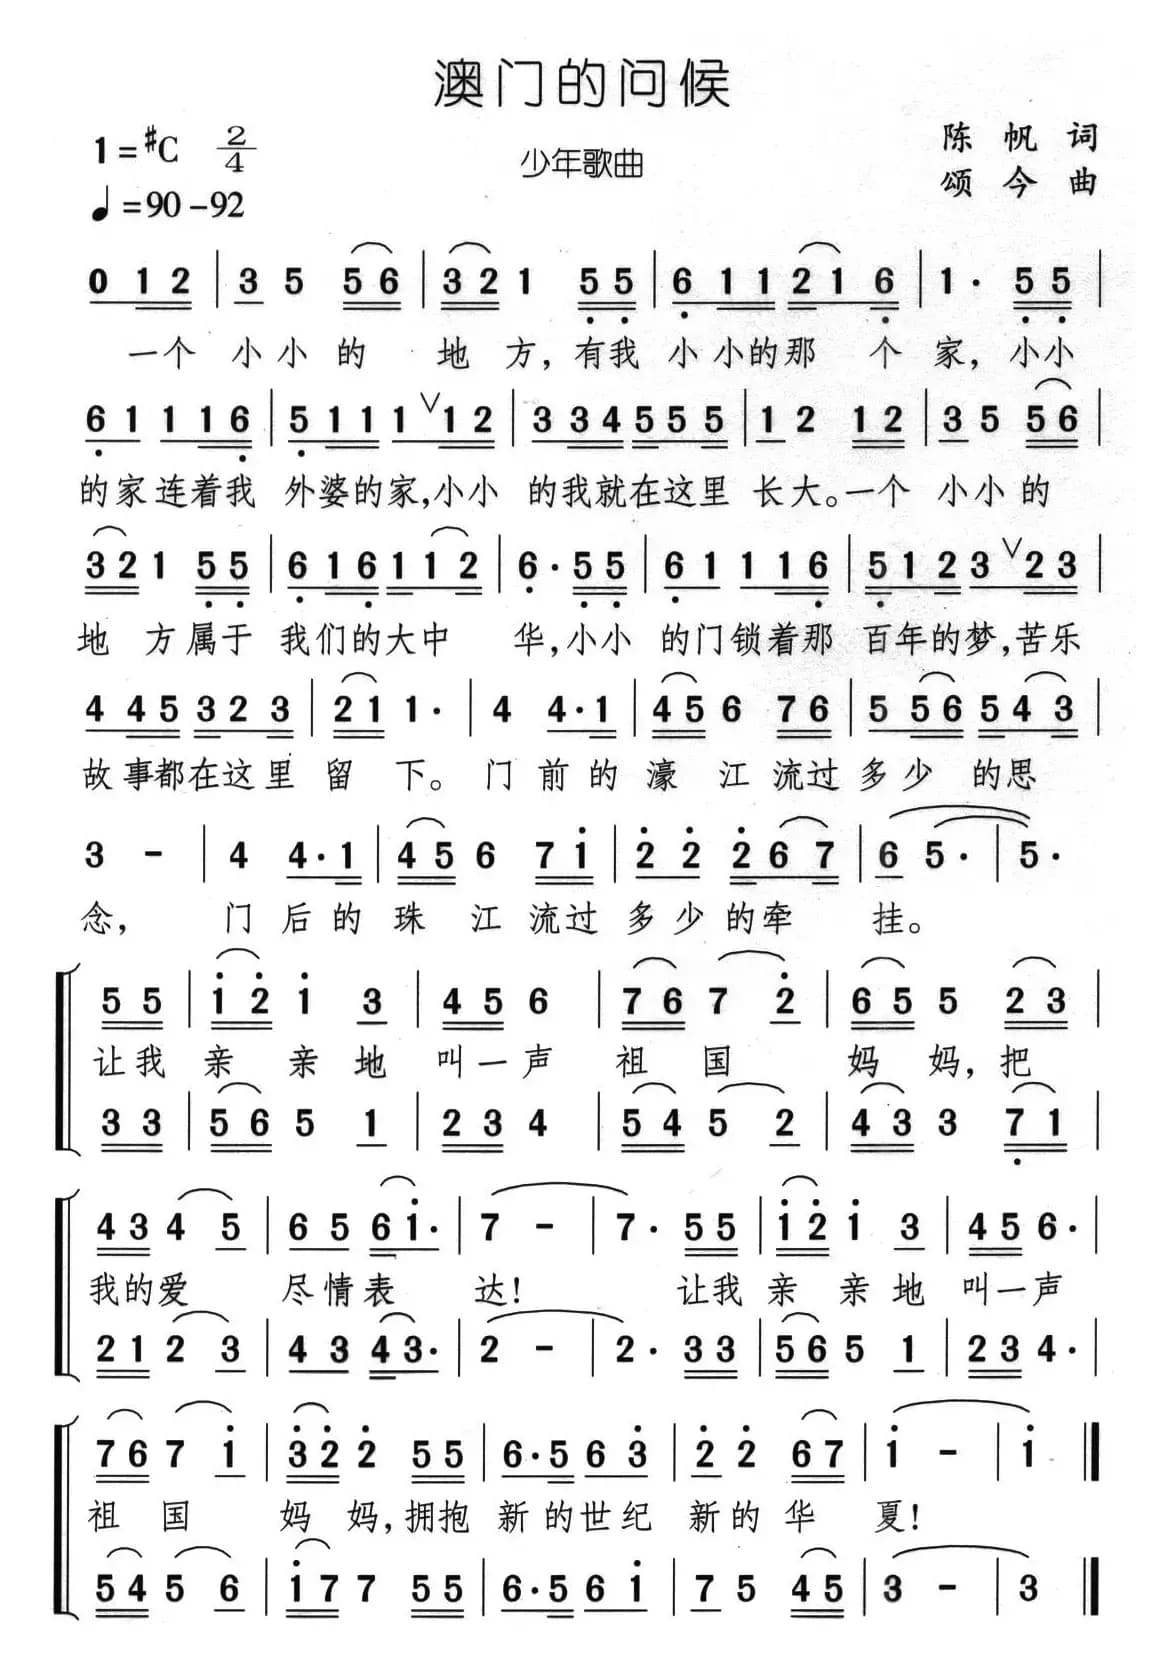 澳门的问候
1=#C 2/4
少年歌曲
陈 帆 词
颂 今 曲
♩=90-92
0 1 2 | 3 5 5 6 | 3 2 1 5 5 | 6 1 1 2 1 6 | 1· 5 5 |
一个 小小的 地方,有我 小小的那 个 家,小小
6 1 1 1 6 | 5 1 1 1 ∨ 1 2 | 3 3 4 5 5 5 | 1 2 1 2 | 3 5 5 6 |
的家连着我 外婆的家,小小 的我就在这里 长大。一个 小小的
3 2 1 5 5 | 6 1 6 1 1 2 | 6· 5 5 | 6 1 1 1 6 | 5 1 2 3 ∨ 2 3 |
地 方属于 我们的大中 华,小小 的门锁着那 百年的梦,苦乐
4 4 5 3 2 3 | 2 1 1· | 4 4· 1 | 4 5 6 7 6 | 5 5 6 5 4 3 |
故事都在这里 留 下。 门 前的 濠 江 流过 多少 的思
3 - | 4 4· 1 | 4 5 6 7 1 | 2 2 2 6 7 | 6 5· | 5·
念, 门 后的 珠 江 流过 多少的牵 挂。
5 5 | 1 2 1 3 | 4 5 6 | 7 6 7 2 | 6 5 5 2 3 |
让我 亲 亲地 叫一声 祖 国 妈 妈,把
3 3 | 5 6 5 1 | 2 3 4 | 5 4 5 2 | 4 3 3 7 1 |
4 3 4 5 | 6 5 6 1· | 7 - | 7· 5 5 | 1 2 1 3 | 4 5 6· |
我的爱 尽情表 达! 让我 亲 亲地 叫一声
2 1 2 3 | 4 3 4 3· | 2 - | 2· 3 3 | 5 6 5 1 | 2 3 4· |
7 6 7 1 | 3 2 2 5 5 | 6· 5 6 3 | 2 2 6 7 | 1 - | 1
祖 国 妈 妈,拥抱 新的世纪 新的华 夏!
5 4 5 6 | 1 7 7 5 5 | 6· 5 6 1 | 7 5 4 5 | 3 - | 3